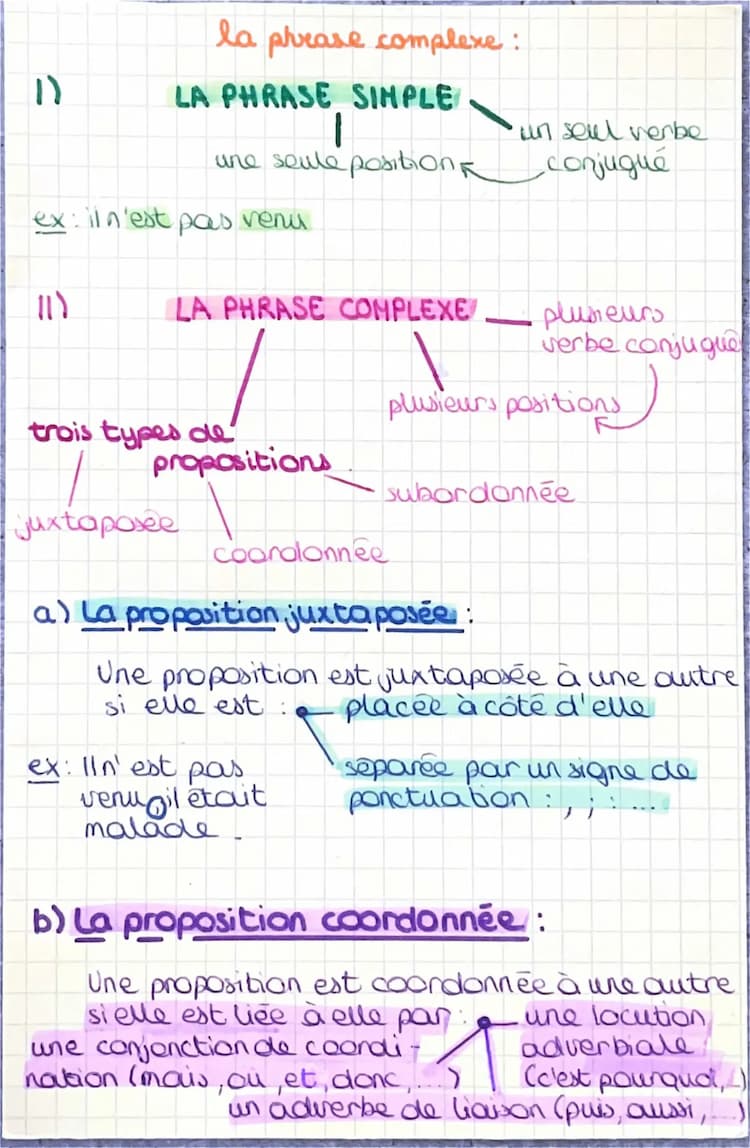 la phrase complexe :
I) LA PHRASE SIMPLE
un seul verbe
conjugué
une seule position
ex : il n'est pas venu
II) LA PHRASE COMPLEXE
plusieurs
verbe conjugué
plusieurs positions
trois types de
propositions
subordonnée
juxtaposée
coordonnée
a) La proposition juxtaposée :
Une proposition est juxtaposée à une autre
si elle est : placée à côté d'elle
ex : Il n'est pas
venu, il était
malade.
séparée par un signe de
ponctuation : , ; : ...
b) La proposition coordonnée :
Une proposition est coordonnée à une autre
si elle est liée à elle par : une locution
une conjonction de coordi- adverbiale
nation (mais, ou, et, donc, ...) (c'est pourquoi, ...)
un adverbe de liaison (puis, aussi, ...)